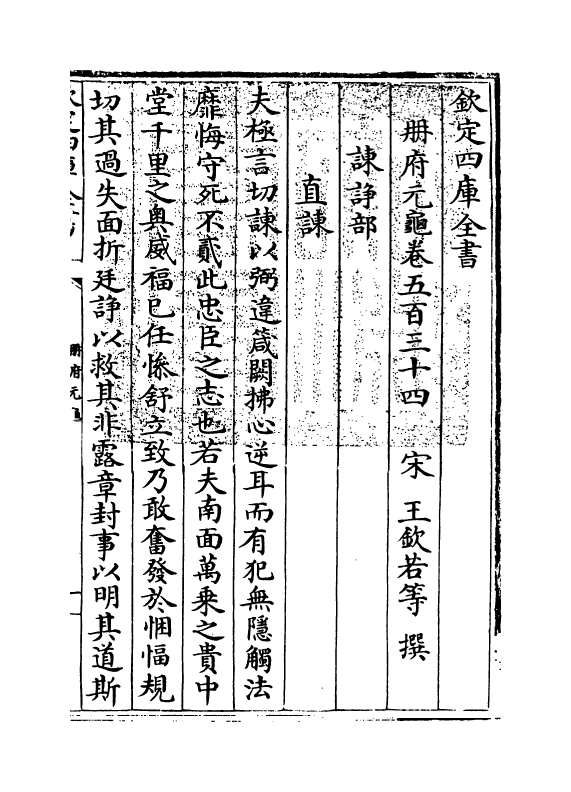 欽定四庫全書
册府元龜卷五百三十四　宋　王欽若等　撰
諫諍部
直諫
夫極言切諫以弼違箴闕拂心逆耳而有犯無隱觸法
靡悔守死不貳此忠臣之志也若夫南面萬乘之貴中
堂千里之奥威福已任慘舒立致乃敢奮發於悃愊規
切其過失面折廷諍以救其非露章封事以明其道斯
册府元
一